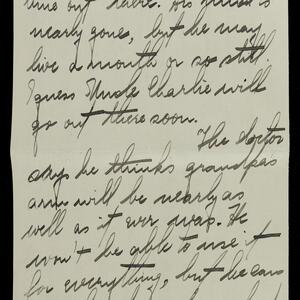 time out there. His mind is
nearly gone, but he may
live a month or so still.
I guess Uncle Charlie will
go out there soon.
The doctor
says he thinks grandpas
arm will be nearly as
well as it ever was. He
won't be able to use it
for everything, but he can